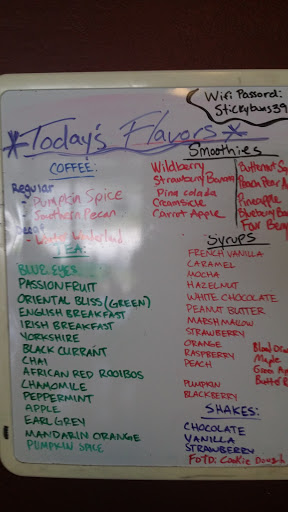 Wifi Passord:
Stickybuns39
*Today's Flavors*
COFFEE:
Regular
- Pumpkin Spice
- Southern Pecan
Decaf
- Winter Wonderland
TEA:
BLUE EYES
PASSIONFRUIT
ORIENTAL BLISS (GREEN)
ENGLISH BREAKFAST
IRISH BREAKFAST
YORKSHIRE
BLACK CURRANT
CHAI
AFRICAN RED ROOIBOS
CHAMOMILE
PEPPERMINT
APPLE
EARL GREY
MANDARIN ORANGE
PUMPKIN SPICE
Smoothies
Wildberry
Strawberry Banana
Pina colada
Creamsicle
Carrot Apple
Peach Pear
Pineapple
Blueberry
Four
Syrups
FRENCH VANILLA
CARAMEL
MOCHA
HAZELNUT
WHITE CHOCOLATE
PEANUT BUTTER
MARSHMALLOW
STRAWBERRY
ORANGE
RASPBERRY
PEACH
PUMPKIN
BLACKBERRY
Blood
Maple
Green
Butter
SHAKES:
CHOCOLATE
VANILLA
STRAWBERRY
FOTD: Cookie Dough